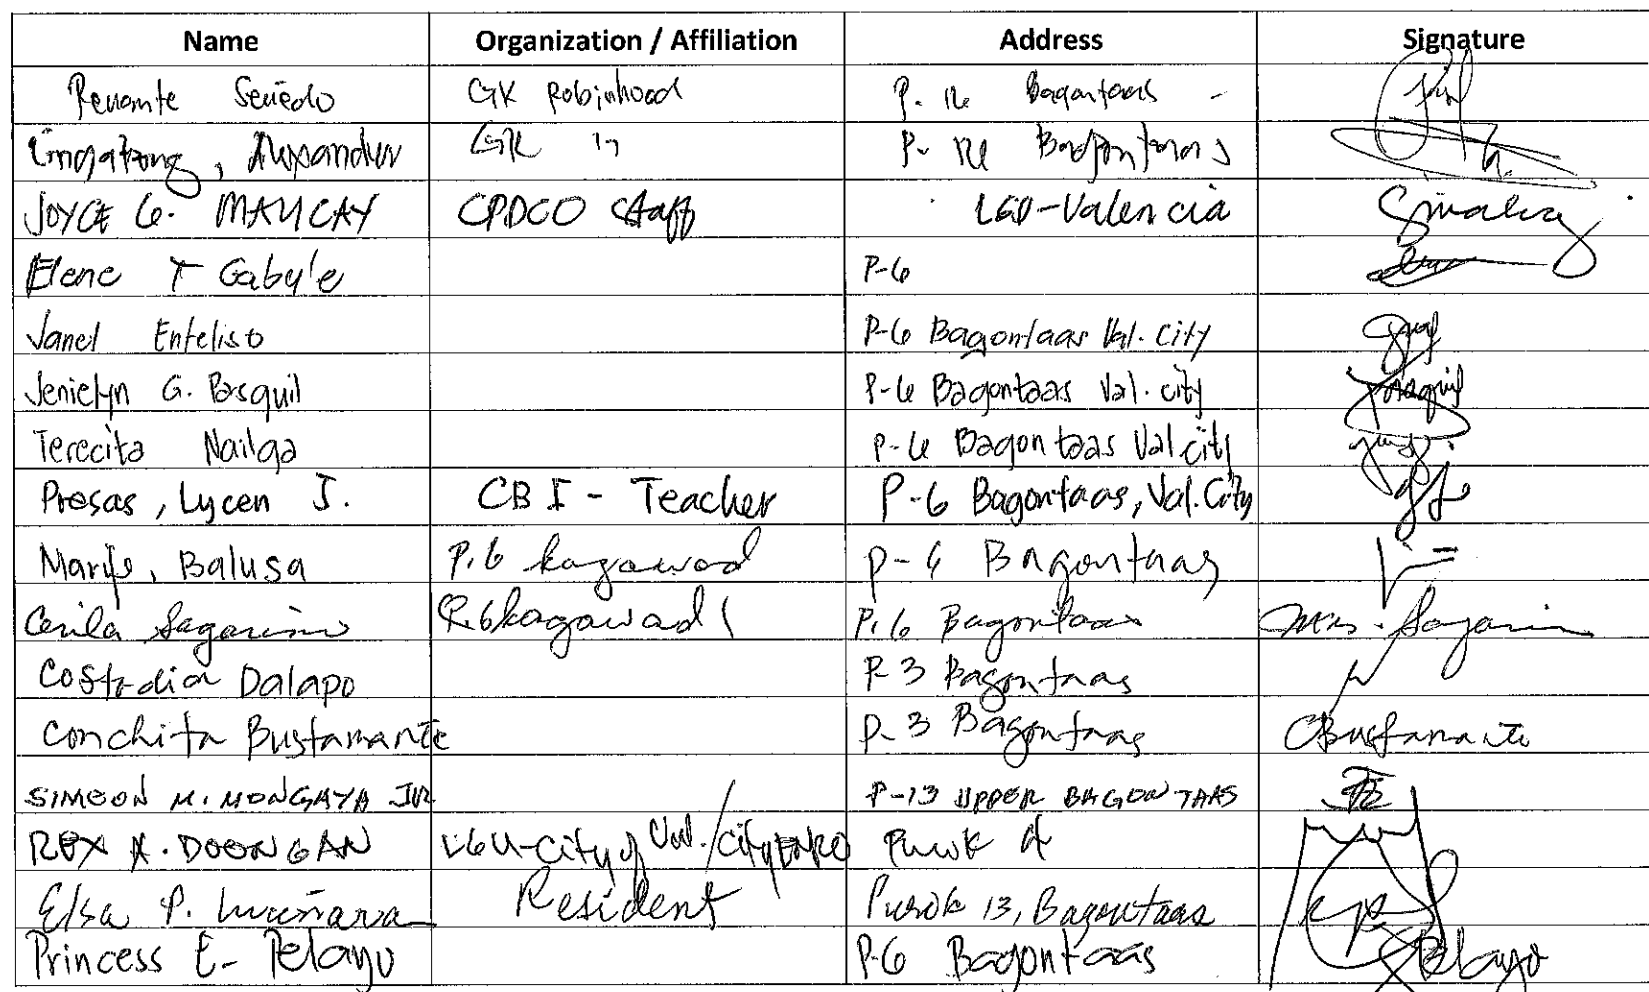 Name Organization / Affiliation Address Signature
Señedo GK Robinhood P. Bagontaas
GK " P- Bagontaas
JOYCE G. CPDCO Staff LGU-Valencia
Elene T P-6
Janel Enteliso P-6 Bagontaas Val. City
Jenielyn G. Pasquil P-6 Bagontaas Val. city Pasquil
Terecita Nailga P-6 Bagontaas Val city
Presas, Lycen J. CBI - Teacher P-6 Bagontaas, Val. City
Balusa P.6 kagawad P-6 Bagontaas
Cerila Sagarino P.6 kagawad P.6 Bagontaas Mrs. Sagarin
Costodia Dalapo P-3 Bagontaas
Conchita Bustamante P-3 Bagontaas CBustamante
SIMEON M. MONGAYA JR. P-13 UPPER BAGONTAAS
REX A. DOONGAN LGU-City of Val./City ENRO Purok
Elsa P. Resident Purok 13, Bagontaas
Princess E. Pelayo P-6 Bagontaas Pelayo